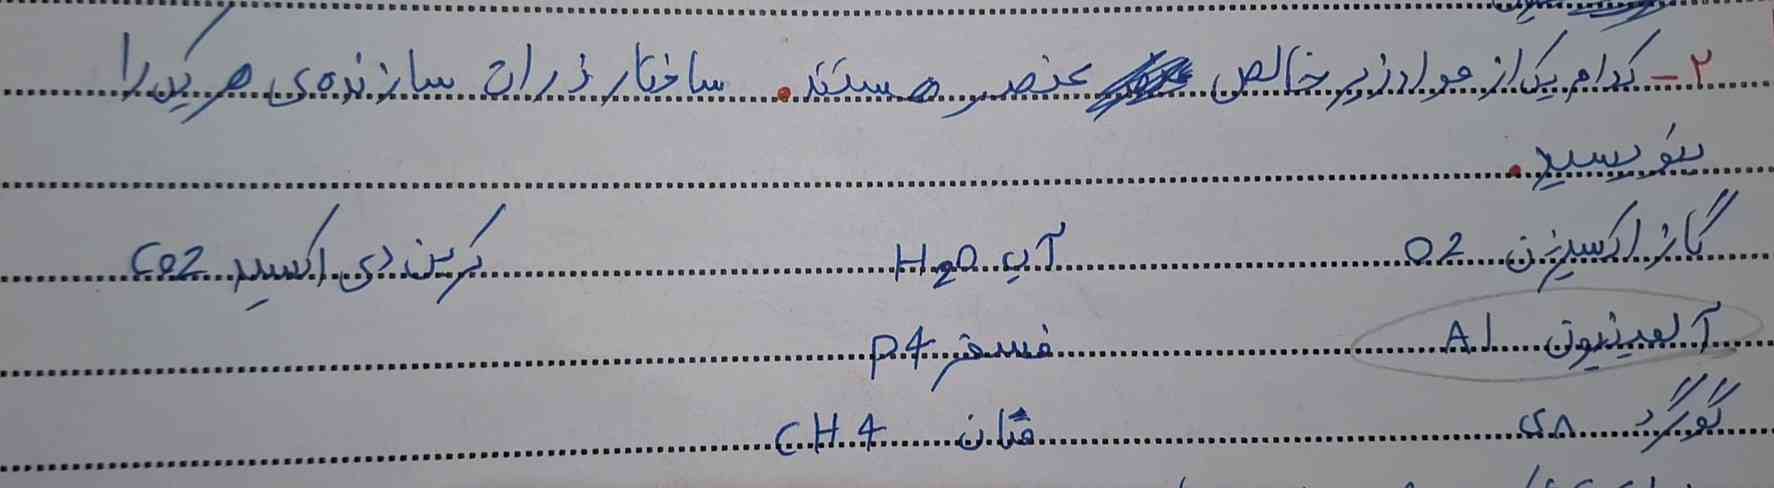 ۲- کدام یک از مواد زیر خالص عنصر هستند. ساختار ذرات سازنده‌ی هر یک را
بنویسید.
گاز اکسیژن O2 آب H2O کربن دی اکسید CO2
آلومینیون Al فسفر P4
گوگرد S۸ متان CH4